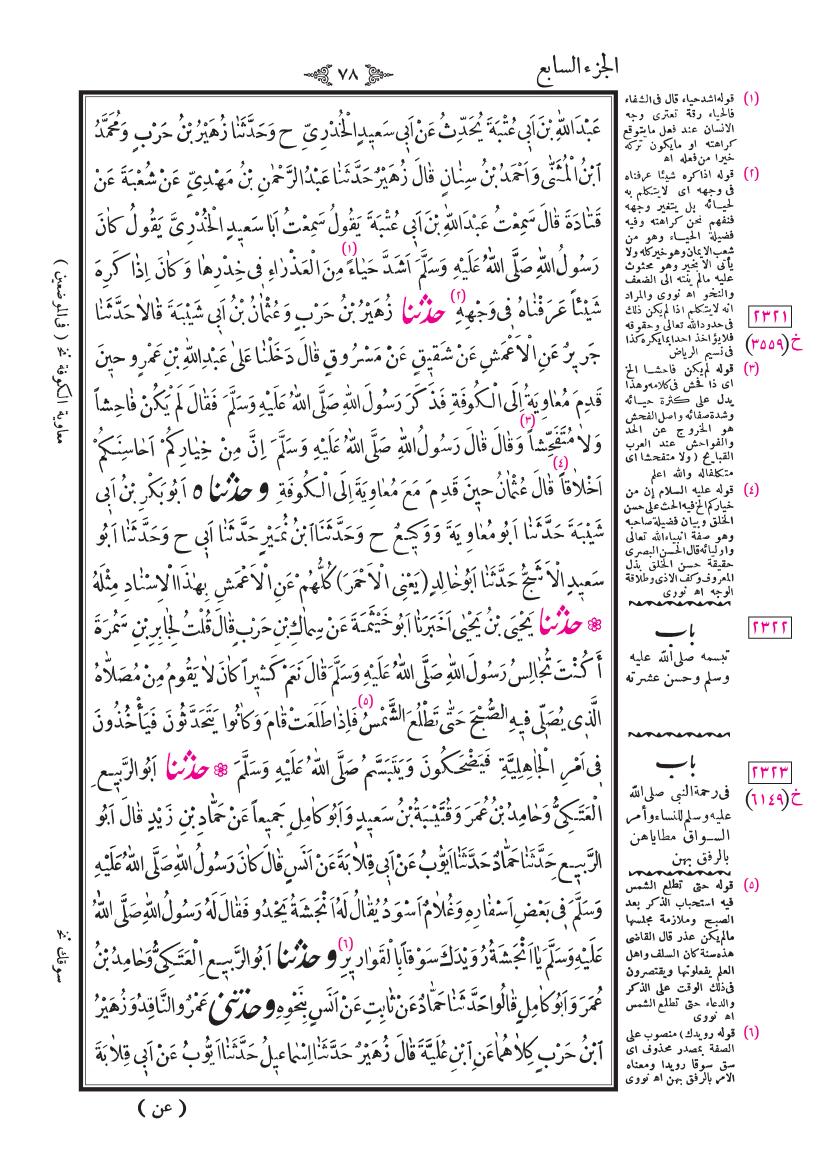 الجزء السابع
٧٨
عَبْدَاللهِ بْنَ اَبِى عُتْبَةَ يُحَدِّثُ عَنْ اَبِى سَعِيدٍ الْخُدْرِىِّ ح وَحَدَّثَنَا زُهَيْرُ بْنُ حَرْبٍ وَمُحَمَّدُ
ابْنُ الْمُثَنّٰى وَاَحْمَدُ بْنُ سِنَانٍ قَالَ زُهَيْرٌ حَدَّثَنَا عَبْدُ الرَّحْمٰنِ بْنُ مَهْدِىٍّ عَنْ شُعْبَةَ عَنْ
قَتَادَةَ قَالَ سَمِعْتُ عَبْدَ اللهِ بْنَ اَبِى عُتْبَةَ يَقُولُ سَمِعْتُ اَبَا سَعِيدٍ الْخُدْرِىَّ يَقُولُ كَانَ
رَسُولُ اللهِ صَلَّى اللهُ عَلَيْهِ وَسَلَّمَ اَشَدَّ حَيَاءً (١) مِنَ الْعَذْرَاءِ فِى خِدْرِهَا وَكَانَ اِذَا كَرِهَ
شَيْئًا عَرَفْنَاهُ فِى وَجْهِهِ (٢) حَدَّثَنَا زُهَيْرُ بْنُ حَرْبٍ وَعُثْمَانُ بْنُ اَبِى شَيْبَةَ قَالَا حَدَّثَنَا
جَرِيرٌ عَنِ الْاَعْمَشِ عَنْ شَقِيقٍ عَنْ مَسْرُوقٍ قَالَ دَخَلْنَا عَلٰى عَبْدِ اللهِ بْنِ عَمْرٍو حِينَ
قَدِمَ مُعَاوِيَةُ اِلَى الْكُوفَةِ فَذَكَرَ رَسُولَ اللهِ صَلَّى اللهُ عَلَيْهِ وَسَلَّمَ فَقَالَ لَمْ يَكُنْ فَاحِشًا
وَلَا مُتَفَحِّشًا (٣) وَقَالَ قَالَ رَسُولُ اللهِ صَلَّى اللهُ عَلَيْهِ وَسَلَّمَ اِنَّ مِنْ خِيَارِكُمْ اَحَاسِنَكُمْ
اَخْلَاقًا (٤) قَالَ عُثْمَانُ حِينَ قَدِمَ مَعَ مُعَاوِيَةَ اِلَى الْكُوفَةِ وَحَدَّثَنَاه اَبُو بَكْرِ بْنُ اَبِى
شَيْبَةَ حَدَّثَنَا اَبُو مُعَاوِيَةَ وَوَكِيعٌ ح وَحَدَّثَنَا ابْنُ نُمَيْرٍ حَدَّثَنَا اَبِى ح وَحَدَّثَنَا اَبُو
سَعِيدٍ الْاَشَجُّ حَدَّثَنَا اَبُو خَالِدٍ (يَعْنِى الْاَحْمَرَ) كُلُّهُمْ عَنِ الْاَعْمَشِ بِهٰذَا الْاِسْنَادِ مِثْلَهُ
❁ حَدَّثَنَا يَحْيَى بْنُ يَحْيٰى اَخْبَرَنَا اَبُو خَيْثَمَةَ عَنْ سِمَاكِ بْنِ حَرْبٍ قَالَ قُلْتُ لِجَابِرِ بْنِ سَمُرَةَ
أَكُنْتَ تُجَالِسُ رَسُولَ اللهِ صَلَّى اللهُ عَلَيْهِ وَسَلَّمَ قَالَ نَعَمْ كَثِيرًا كَانَ لَا يَقُومُ مِنْ مُصَلَّاهُ
الَّذِى يُصَلِّى فِيهِ الصُّبْحَ حَتّٰى تَطْلُعَ الشَّمْسُ (٥) فَاِذَا طَلَعَتْ قَامَ وَكَانُوا يَتَحَدَّثُونَ فَيَأْخُذُونَ
فِى اَمْرِ الْجَاهِلِيَّةِ فَيَضْحَكُونَ وَيَتَبَسَّمُ صَلَّى اللهُ عَلَيْهِ وَسَلَّمَ ❁ حَدَّثَنَا اَبُو الرَّبِيعِ
الْعَتَكِىُّ وَحَامِدُ بْنُ عُمَرَ وَقُتَيْبَةُ بْنُ سَعِيدٍ وَاَبُو كَامِلٍ جَمِيعًا عَنْ حَمَّادِ بْنِ زَيْدٍ قَالَ اَبُو
الرَّبِيعِ حَدَّثَنَا حَمَّادٌ حَدَّثَنَا اَيُّوبُ عَنْ اَبِى قِلَابَةَ عَنْ اَنَسٍ قَالَ كَانَ رَسُولُ اللهِ صَلَّى اللهُ عَلَيْهِ
وَسَلَّمَ فِى بَعْضِ اَسْفَارِهِ وَغُلَامٌ اَسْوَدُ يُقَالُ لَهُ اَنْجَشَةُ يَحْدُو فَقَالَ لَهُ رَسُولُ اللهِ صَلَّى اللهُ
عَلَيْهِ وَسَلَّمَ يَا اَنْجَشَةُ رُوَيْدَكَ سَوْقًا بِالْقَوَارِيرِ (٦) وَحَدَّثَنَا اَبُو الرَّبِيعِ الْعَتَكِىُّ وَحَامِدُ بْنُ
عُمَرَ وَاَبُو كَامِلٍ قَالُوا حَدَّثَنَا حَمَّادٌ عَنْ ثَابِتٍ عَنْ اَنَسٍ بِنَحْوِهِ وَحَدَّثَنِى عَمْرٌو النَّاقِدُ وَزُهَيْرُ
ابْنُ حَرْبٍ كِلَاهُمَا عَنِ ابْنِ عُلَيَّةَ قَالَ زُهَيْرٌ حَدَّثَنَا اِسْمَاعِيلُ حَدَّثَنَا اَيُّوبُ عَنْ اَبِى قِلَابَةَ
( عن )
(١) قوله اشد حياء قال فى الشفاء
فالحياء رقة تعترى وجه
الانسان عند فعل ما يتوقع
كراهته او ما يكون تركه
خيرا من فعله اه
(٢) قوله اذا كره شيئا عرفناه
فى وجهه اى لا يتكلم به
لحيائه بل يتغير وجهه
فنفهم نحن كراهته وفيه
فضيلة الحياء وهو من
شعب الايمان وهو خير كله ولا
يأتى الا بخير وهو محثوث
عليه مالم ينته الى الضعف
والنخو اه نووى والمراد
انه لا يتكلم اذا لم يكن ذلك
فى حدود الله تعالى وحقوقه
فلا يؤاخذ احدا بما يكره كذا
فى نسيم الرياض
(٣) قوله لم يكن فاحشا الخ
اى ذا فحش فى كلامه وهذا
يدل على كثرة حيائه
وشدة صفائه واصل الفحش
هو الخروج عن الحد
والفواحش عند العرب
القبايح (ولا متفحشا اى
متكلفا له والله اعلم
(٤) قوله عليه السلام إن من
خياركم الخ فيه الحث على حسن
الخلق وبيان فضيلة صاحبه
وهو صفة انبياء الله تعالى
واوليائه قال الحسن البصرى
حقيقة حسن الخلق بذل
المعروف وكف الاذى وطلاقة
الوجه اه نووى
باب
تبسمه صلى الله عليه
وسلم وحسن عشرته
باب
فى رحمة النبى صلى الله
عليه وسلم للنساء وأمر
السواق مطاياهن
بالرفق بهن
(٥) قوله حتى تطلع الشمس
فيه استحباب الذكر بعد
الصبح وملازمة مجلسها
مالم يكن عذر قال القاضى
هذه سنة كان السلف واهل
العلم يفعلونها ويقتصرون
فى ذلك الوقت على الذكر
والدعاء حتى تطلع الشمس
اه نووى
(٦) قوله رويدك) منصوب على
الصفة بمصدر محذوف اى
سق سوقا رويدا ومعناه
الامر بالرفق بهن اه نووى
٢٣٢١
خ (٣٥٥٩)
٢٣٢٢
٢٣٢٣
خ (٦١٤٩)
معاوية الكوفة نخ ( فى الموضعين )
سوقك نخ